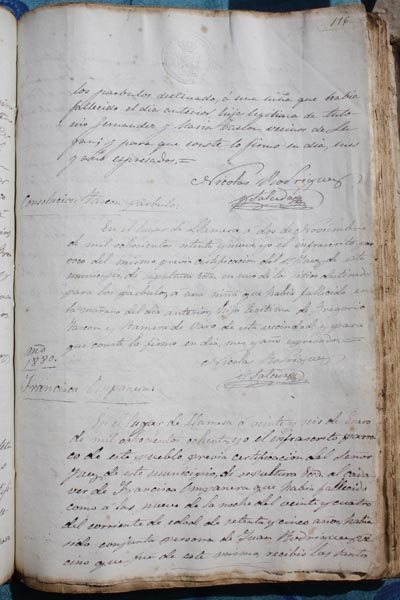 116
los parbulos destinado, á una niña que habia
fallecido el dia anterior, hija legitima de
Fernandez y Maria vecinos de
y para que conste lo firmo en dia, mes
y año espresados.=
Nicolas Rodriguez
y Salceda
Consolacion parbula
En el lugar de Llamera a dos de Noviembre
de mil ochocientos setenta y nueve yo el infrascrito par
roco del mismo previa certificacion del Sr Juez de este
municipio di sepultura en uno de los sitios destinados
para los parbulos, a una niña que habia fallecido en
la mañana del dia anterior, hija legitima de Gregorio
y Ramona de Caro de esta vecindad y para
que conste lo firmo en dia, mes y año espresados.=
Nicolas Rodriguez
y Salceda
1880.
Francisca Companera
En el lugar de Llamera a veinte y seis de Enero
de mil ochocientos ochenta, yo el infrascrito parro
co de este pueblo previa certificacion del Señor
Juez de este municipio di sepultura al cada
ver de Francisca Companera que habia fallecido
como a las nueve de la noche del veinte y cuatro
del corriente de edad de setenta y cinco años habia
sido conjunta persona de Juan Rodriguez ve
cino que fue de este mismo recibio los Santo